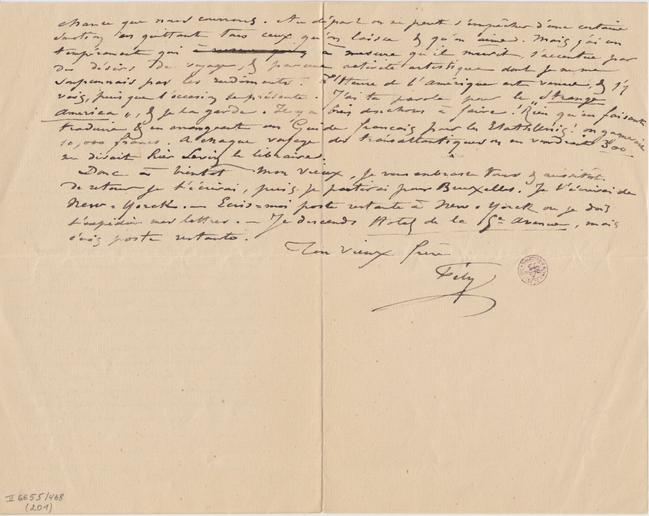 chance que nous courrons. Au départ on ne peut s'empêcher d'une certaine
en quittant tous ceux qu'on laisse & qu'on aime. Mais j'ai un
tempérament qui à mesure qu'il mûrit, s'accentue par
du désirs de voyage, & par une activité artistique dont je ne me
soupçonnais pas les rudiments. L'Heure de l'Amérique est venue, & j'y
vais, puisque l'occasion se présente. J'ai ta parole pour le Strange
America, & je la garde. Il y a bien des choses à faire! Rien qu'en faisant
traduire & en arrangeant un Guide français pour les Etats-Unis, on gagnerait
10,000 francs. A chaque voyage des transatlantiques on en vendrait 300
me disait hier Levy le libraire.
Donc à bientôt mon vieux, je vous embrasse tous & aussitôt
de retour je t'écrirai, puis je partirai pour Bruxelles. Je t'écrirai de
New-Yorck. — Ecris-moi poste restante à New-Yorck où je dois
mes lettres. — Je descends Hotel de la 5e Avenue, mais
écris poste restante.
Ton vieux frère
Fély
II 6655/468
(201)